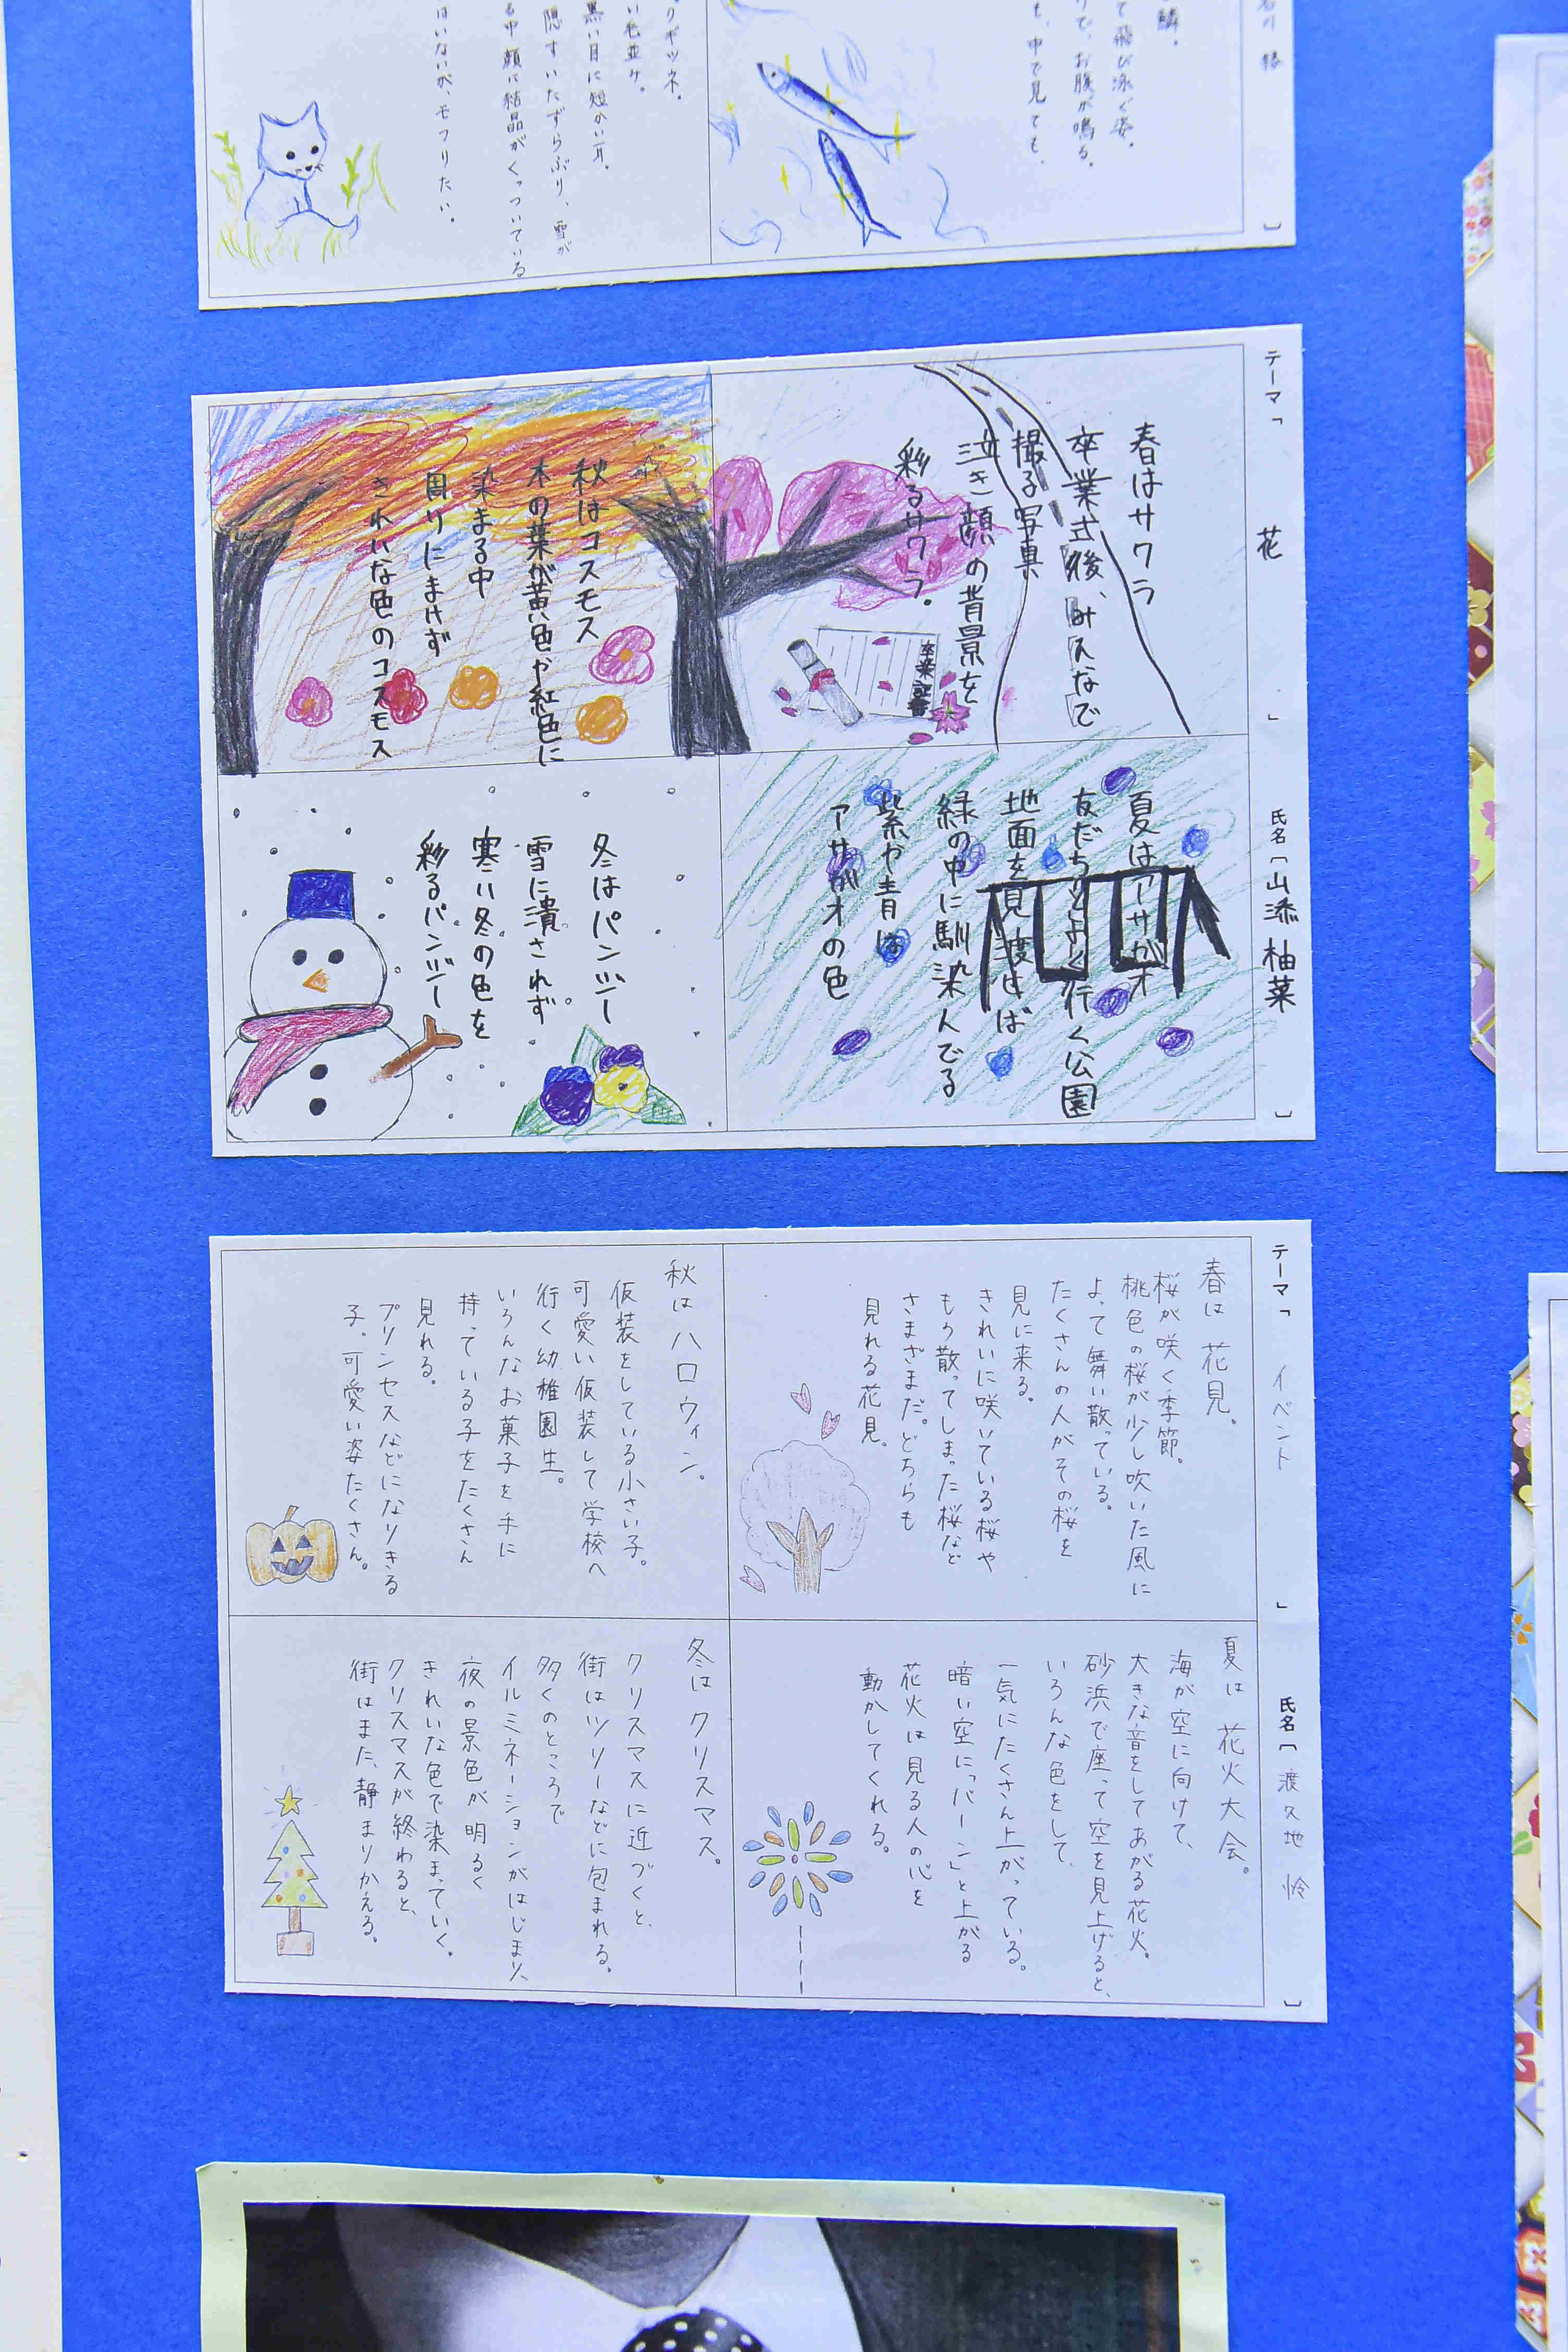 鱗。
て飛び泳ぐ姿。
りで、お腹が鳴る。
も、中で見ても、
クギツネ。
い毛並み。
黒い目に短かい耳。
隠すいたずらぶり、雪が
る中顔に結晶がくっついている
はいないが、モフりたい。
テーマ「 花 」
氏名〔山添 柚葉〕
春はサクラ
卒業式後、みんなで
撮る写真
泣き顔の背景を
彩るサクラ。
卒業証書
夏はアサガオ
友だちとよく行く公園
地面を見渡せば
緑の中に馴染んでる
紫や青は
アサガオの色
秋はコスモス
木の葉が黄色や紅色に
染まる中
周りにまけず
きれいな色のコスモス
冬はパンジー
雪に潰されず
寒い冬の色を
彩るパンジー
テーマ「 イベント 」
氏名〔渡久地 怜〕
春は 花見。
桜が咲く季節。
桃色の桜が少し吹いた風に
よって舞い散っている。
たくさんの人がその桜を
見に来る。
きれいに咲いている桜や
もう散ってしまった桜など
さまざまだ。どちらも
見れる花見。
夏は 花火大会。
海が空に向けて、
大きな音をしてあがる花火。
砂浜で座って空を見上げると、
いろんな色をして、
一気にたくさん上がっている。
暗い空に「バーン」と上がる
花火は見る人の心を
動かしてくれる。
秋は ハロウィン。
仮装をしている小さい子。
可愛い仮装して学校へ
行く幼稚園生。
いろんなお菓子を手に
持っている子をたくさん
見れる。
プリンセスなどになりきる
子。可愛い姿たくさん。
冬は クリスマス。
クリスマスに近づくと、
街はツリーなどに包まれる。
多くのところで
イルミネーションがはじまり、
夜の景色が明るく
きれいな色で染まっていく。
クリスマスが終わると、
街はまた、静まりかえる。